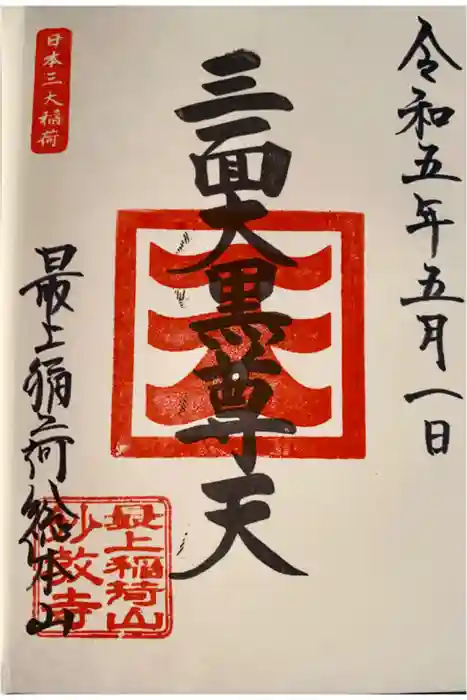 令和五年五月一日
三面大黒尊天
日本三大稲荷
最上稲荷総本山
最上稲荷山
妙教寺